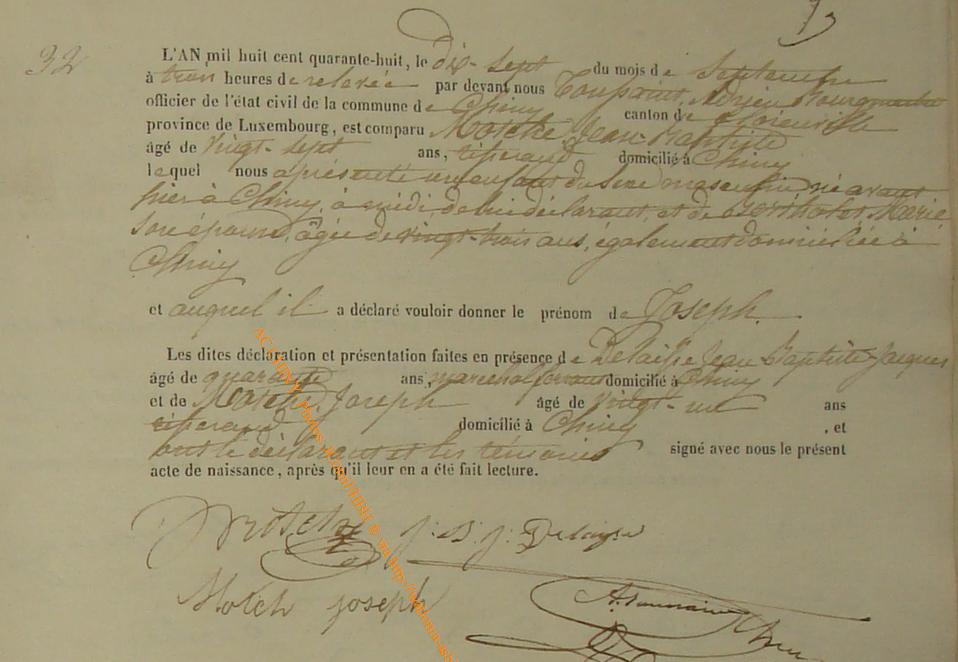 32
L'AN mil huit cent quarante-huit, le dix-sept du mois de Septembre
à trois heures de relevée par devant nous Toussaint, Adrien Bourgmestre
officier de l'état civil de la commune de Chiny canton de Florenville
province de Luxembourg, est comparu Motché Jean-Baptiste
âgé de vingt-sept ans, tisserand domicilié à Chiny
lequel nous a présenté un enfant du sexe masculin, né avant
hier à Chiny, à midi, de lui déclarant, et de Bertholet, Marie
son épouse, âgée de vingt-trois ans, également domiciliée à
Chiny
et auquel il a déclaré vouloir donner le prénom de Joseph.
Les dites déclaration et présentation faites en présence de Delaisse Jean-Baptiste-Jacques
âgé de quarante ans, maréchal ferrant domicilié à Chiny
et de Motché, Joseph âgé de vingt-un ans
tisserand domicilié à Chiny , et
ont le déclarant et les témoins signé avec nous le présent
acte de naissance, après qu'il leur en a été fait lecture.
J: B: J: Delaisse
Motch joseph
A. Toussaint